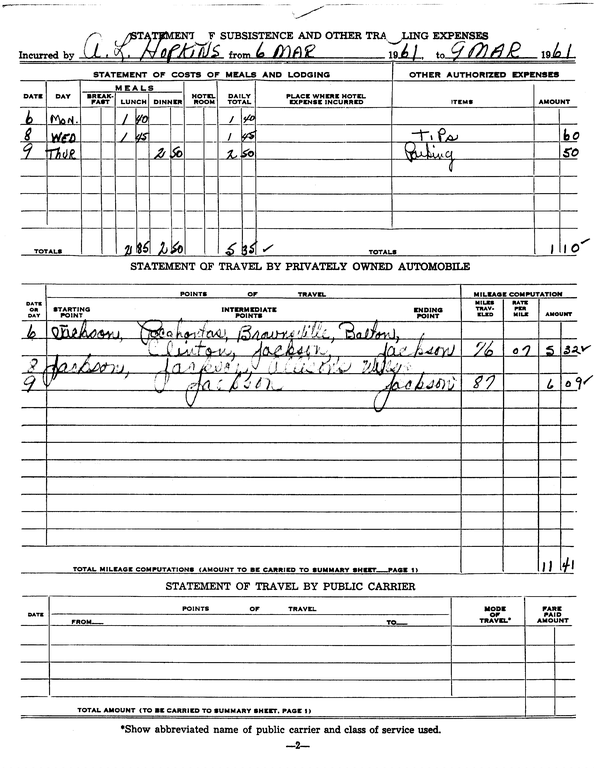 STATEMENT F SUBSISTENCE AND OTHER TRA LING EXPENSES
Incurred by A. L. HOPKINS from 6 MAR 1961, to 9 MAR 1961
STATEMENT OF COSTS OF MEALS AND LODGING OTHER AUTHORIZED EXPENSES
DATE DAY MEALS BREAK-FAST LUNCH DINNER HOTEL ROOM DAILY TOTAL PLACE WHERE HOTEL EXPENSE INCURRED ITEMS AMOUNT
6 MON. 1 40 1 40
8 WED 1 45 1 45 TIPS 60
9 THUR 2 50 2 50 Parking 50
TOTALS 2 85 2 50 5 35 ✓ TOTALS 1 10 ✓
STATEMENT OF TRAVEL BY PRIVATELY OWNED AUTOMOBILE
POINTS OF TRAVEL MILEAGE COMPUTATION
DATE OR DAY STARTING POINT INTERMEDIATE POINTS ENDING POINT MILES TRAV-ELED RATE PER MILE AMOUNT
6 Jackson, Pocahontas, Brownsville, Bolton,
Clinton, Jackson, Jackson 76 07 5 32 ✓
8 Jackson,
9 Jackson Jackson 87 6 09 ✓
TOTAL MILEAGE COMPUTATIONS (AMOUNT TO BE CARRIED TO SUMMARY SHEET—PAGE 1) 11 41
STATEMENT OF TRAVEL BY PUBLIC CARRIER
DATE POINTS OF TRAVEL MODE OF TRAVEL* FARE PAID AMOUNT
FROM— TO—
TOTAL AMOUNT (TO BE CARRIED TO SUMMARY SHEET, PAGE 1)
*Show abbreviated name of public carrier and class of service used.
—2—